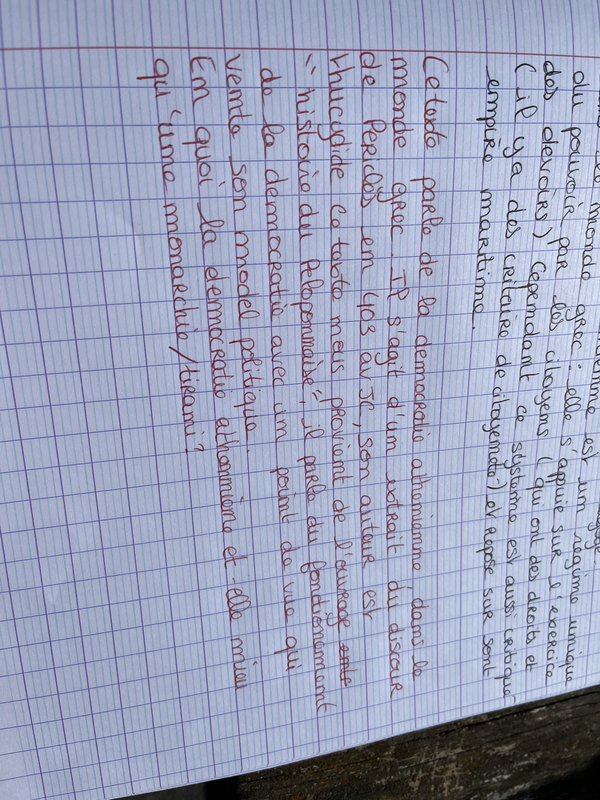 monde grec : elle s'appuie sur l'exercice
du pouvoir par les citoyens ( qui ont des droits et
des devoirs) Cependant ce système est aussi critiquer
( il y a des critaire de citoyeneté) et repose sur sont
empire maritime.
Ce texte parle de la democratie atheniemme dans le
monde grec. Il s'agit d'un extrait du discour
de Periclès em 403 av JC, son auteur est
thucydide ce texte mous provient de l'œuvrage
"histoire du Peloponnaise", il parle du fonctionemment
de la democratie avec um point de vue qui
vemte son model politique.
Em quoi la democratie athenmième et-elle mieu
qu'ume monarchie/tirami?